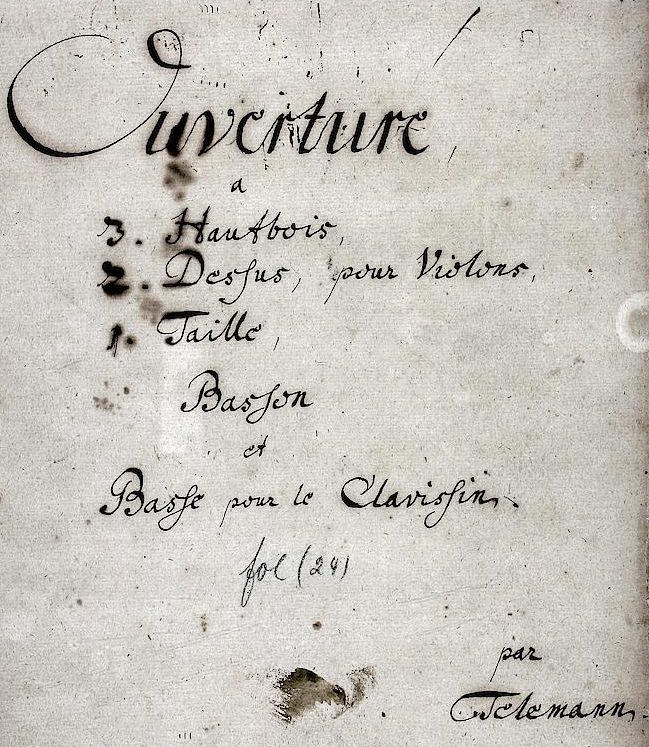 Ouverture,
a
3. Hautbois,
2. Dessus, pour Violons,
1. Taille,
Basson
et
Basse pour le Clavissin.
fol (24)
par
Telemann.